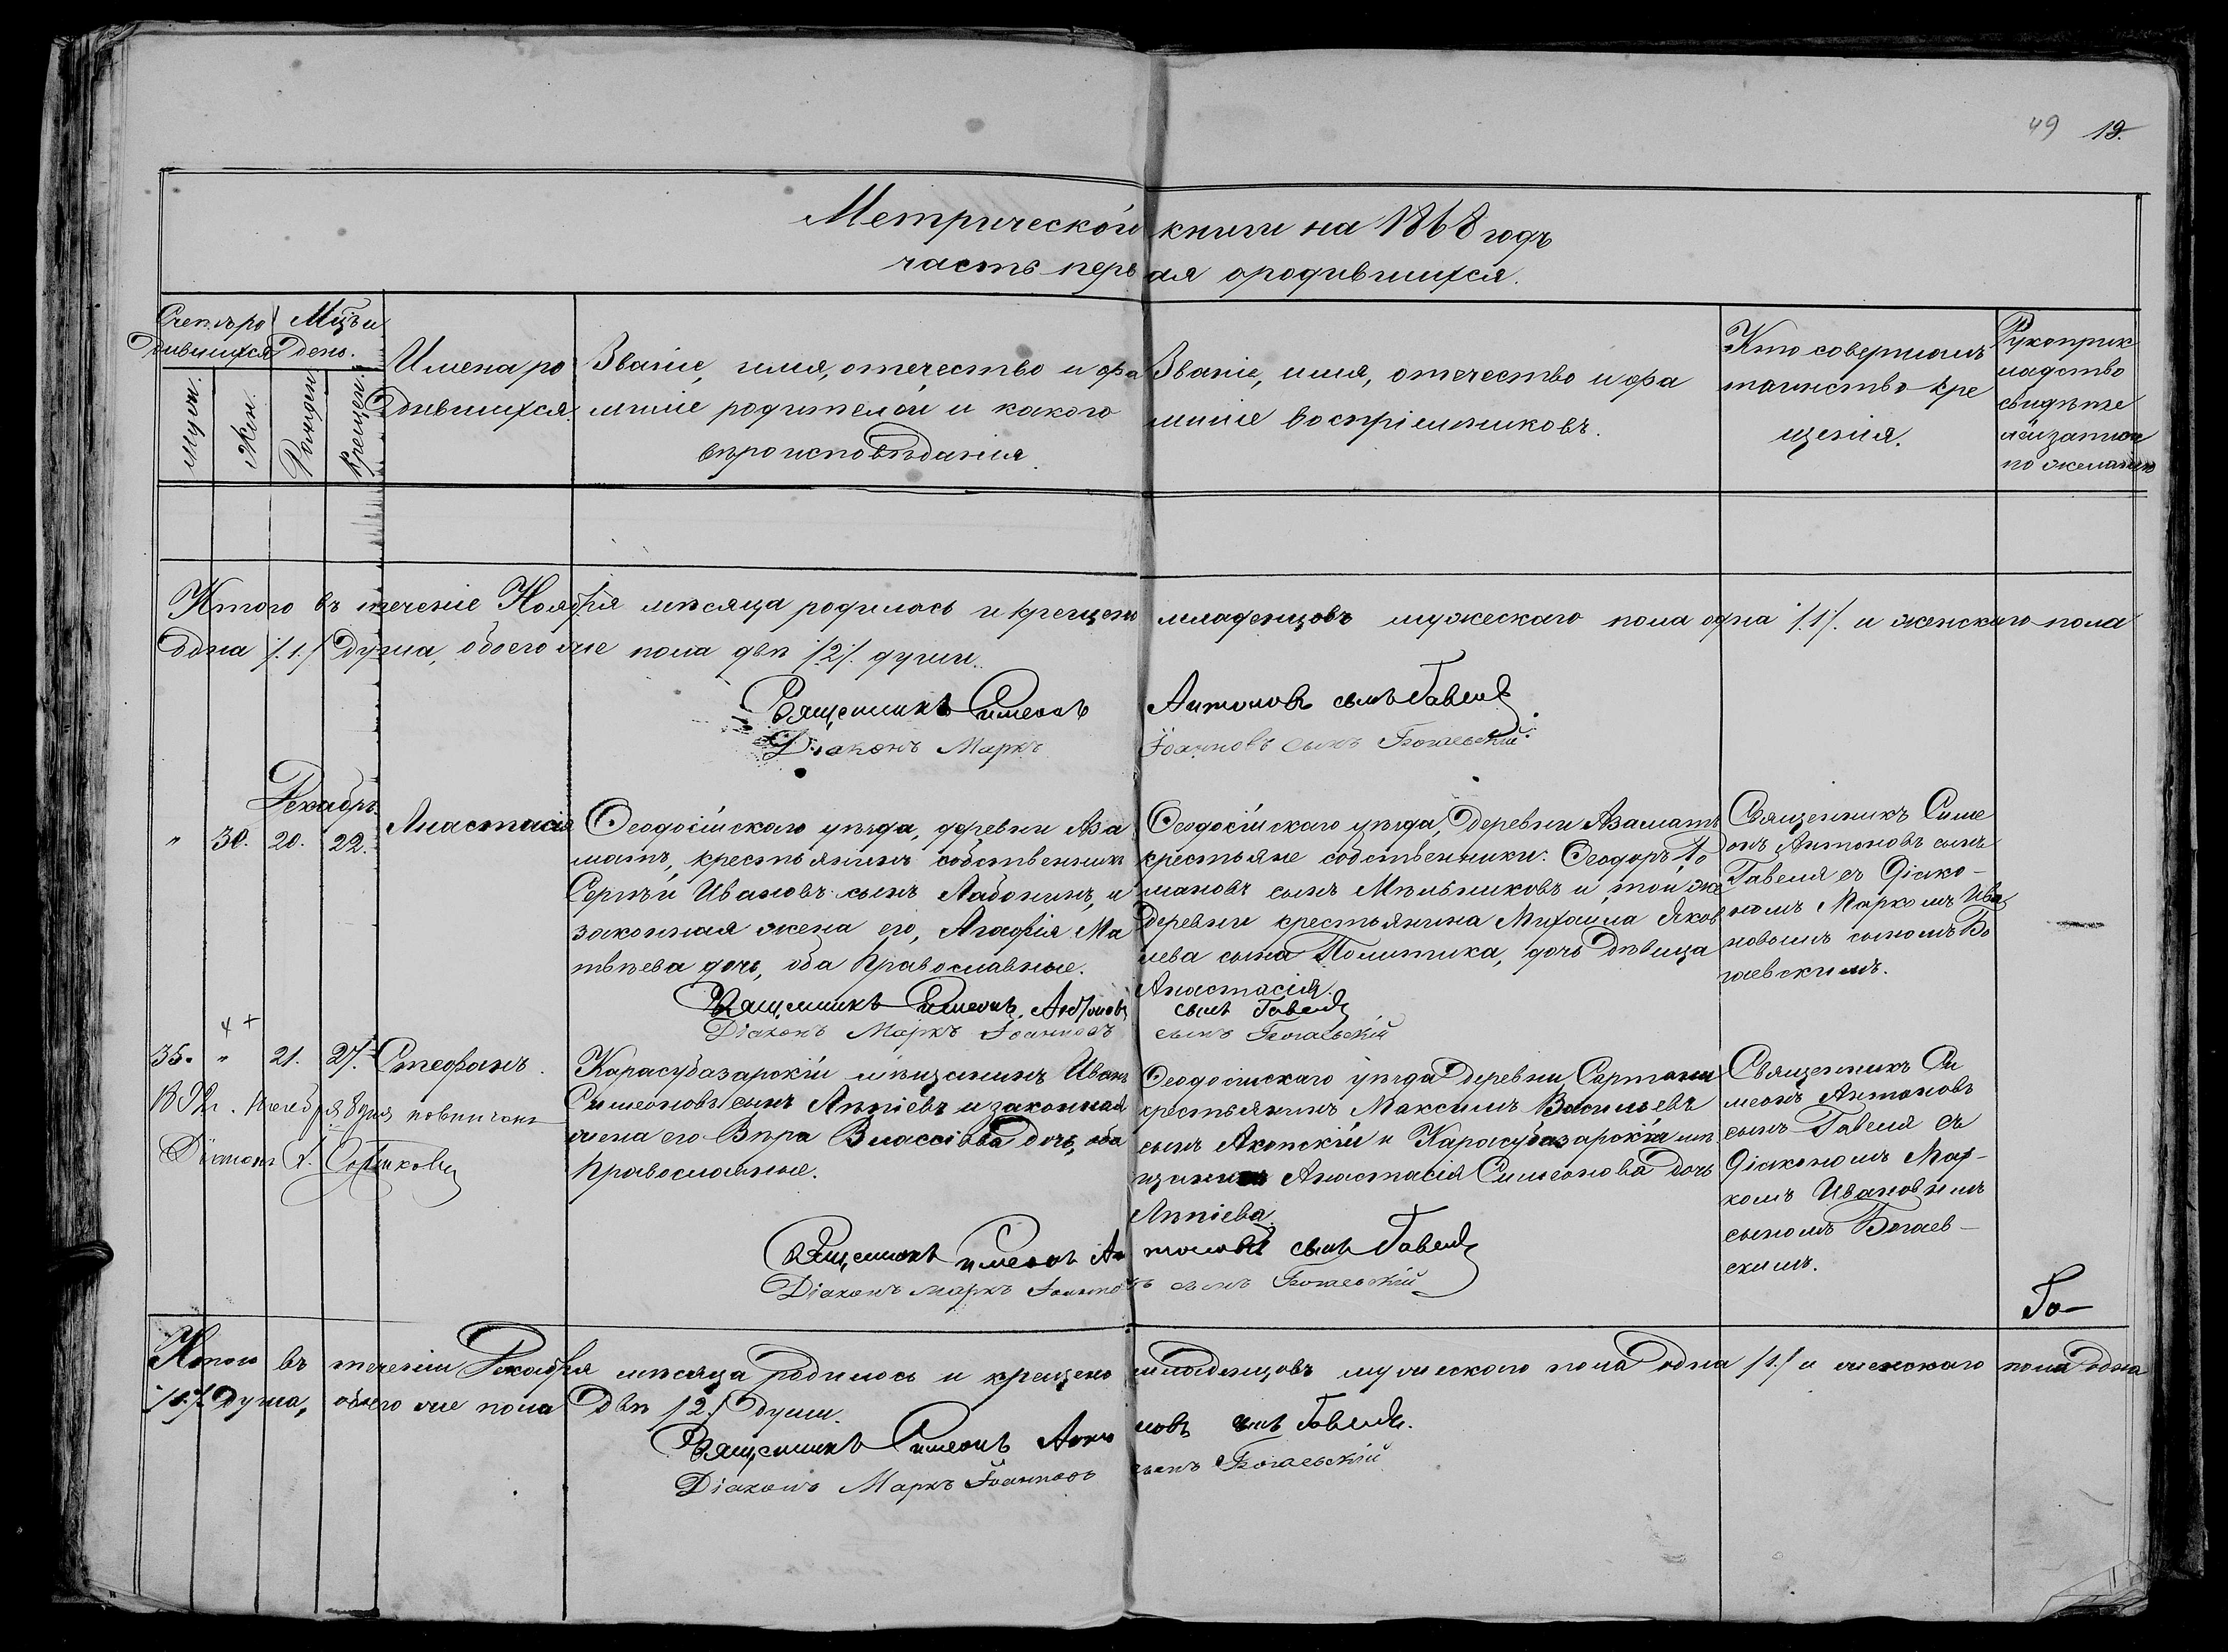 49 19.
Метрической книги на 1868 годъ
часть первая о родившихся.
Счетъ ро
дившихся
Мцъ и
день.
Мужеск.
Жен.
Рожден.
Крещен.
Имена ро
дившихся.
Званіе, имя, отчество и фа
миліе родителей и какого
вѣроисповѣданія.
Званіе, имя, отчество и фа
миліе воспріемниковъ.
Кто совершалъ
таинство кре
щенія.
Рукоприк
ладство
свидѣте
лей записи
по желанію
Итого въ теченіе Ноября мѣсяца родилось и крещено младенцовъ мужескаго пола одна /.1/. и женскаго пола
одна /.1./ душа, обоего же пола двѣ /.2/. души.
Священникъ Симеонъ Антоновъ сынъ Гавеля
Діаконъ Маркъ Іоанновъ сынъ Богаевскій
Декабрь.
" 30. 20. 22.
Анастасія
Ѳеодосійскаго уѣзда, деревни Аза
матъ, крестьянинъ собственникъ
Сергѣй Ивановъ сынъ Лабонинъ, и
законная жена его, Агафія Ма
твѣева дочь, оба Православные.
Ѳеодосійскаго уѣзда, деревни Азаматъ
крестьяне собственники: Ѳеодоръ Ро
мановъ сынъ Мѣльниковъ и той же
деревни крестьянина Михаила Яков
лева сына Политика, дочь дѣвица
Анастасія.
Священникъ Симе
онъ Антоновъ сынъ
Гавеля съ Діако-
номъ Маркомъ Ива
новымъ сыномъ Бо
гаевскимъ.
Священникъ Симеонъ Антоновъ сынъ Гавеля
Діаконъ Маркъ Іоанновъ сынъ Богаевскій
4 +
35. " 21. 27.
Стефанъ.
Карасубазарскій мѣщанинъ Иванъ
Симеоновъ сынъ Аппіевъ и законная
жена его Вѣра Влассіова дочь, оба
Православные.
Ѳеодосійскаго уѣзда деревни Сартана
крестьянинъ Максимъ Васильевъ
сынъ Акопскій и Карасубазарскія мѣ
щанки Анастасія Симеонова дочь
Аппіева.
Священникъ Си
меонъ Антоновъ
сынъ Гавеля съ
Діакономъ Мар-
комъ Ивановымъ
сыномъ Богаев-
скимъ.
Ноября 8 дня повѣнчанъ
Діаконъ
Священникъ Симеонъ Антоновъ сынъ Гавеля
Діаконъ Маркъ Іоанновъ сынъ Богаевскій
Го-
Итого въ теченіи Декабря мѣсяца родилось и крещено младенцовъ мужескаго пола одна /1./ и женскаго пола одна
/1./ душа, обоего же пола двѣ /2./ души.
Священникъ Симеонъ Антоновъ сынъ Гавеля.
Діаконъ Маркъ Іоанновъ сынъ Богаевскій